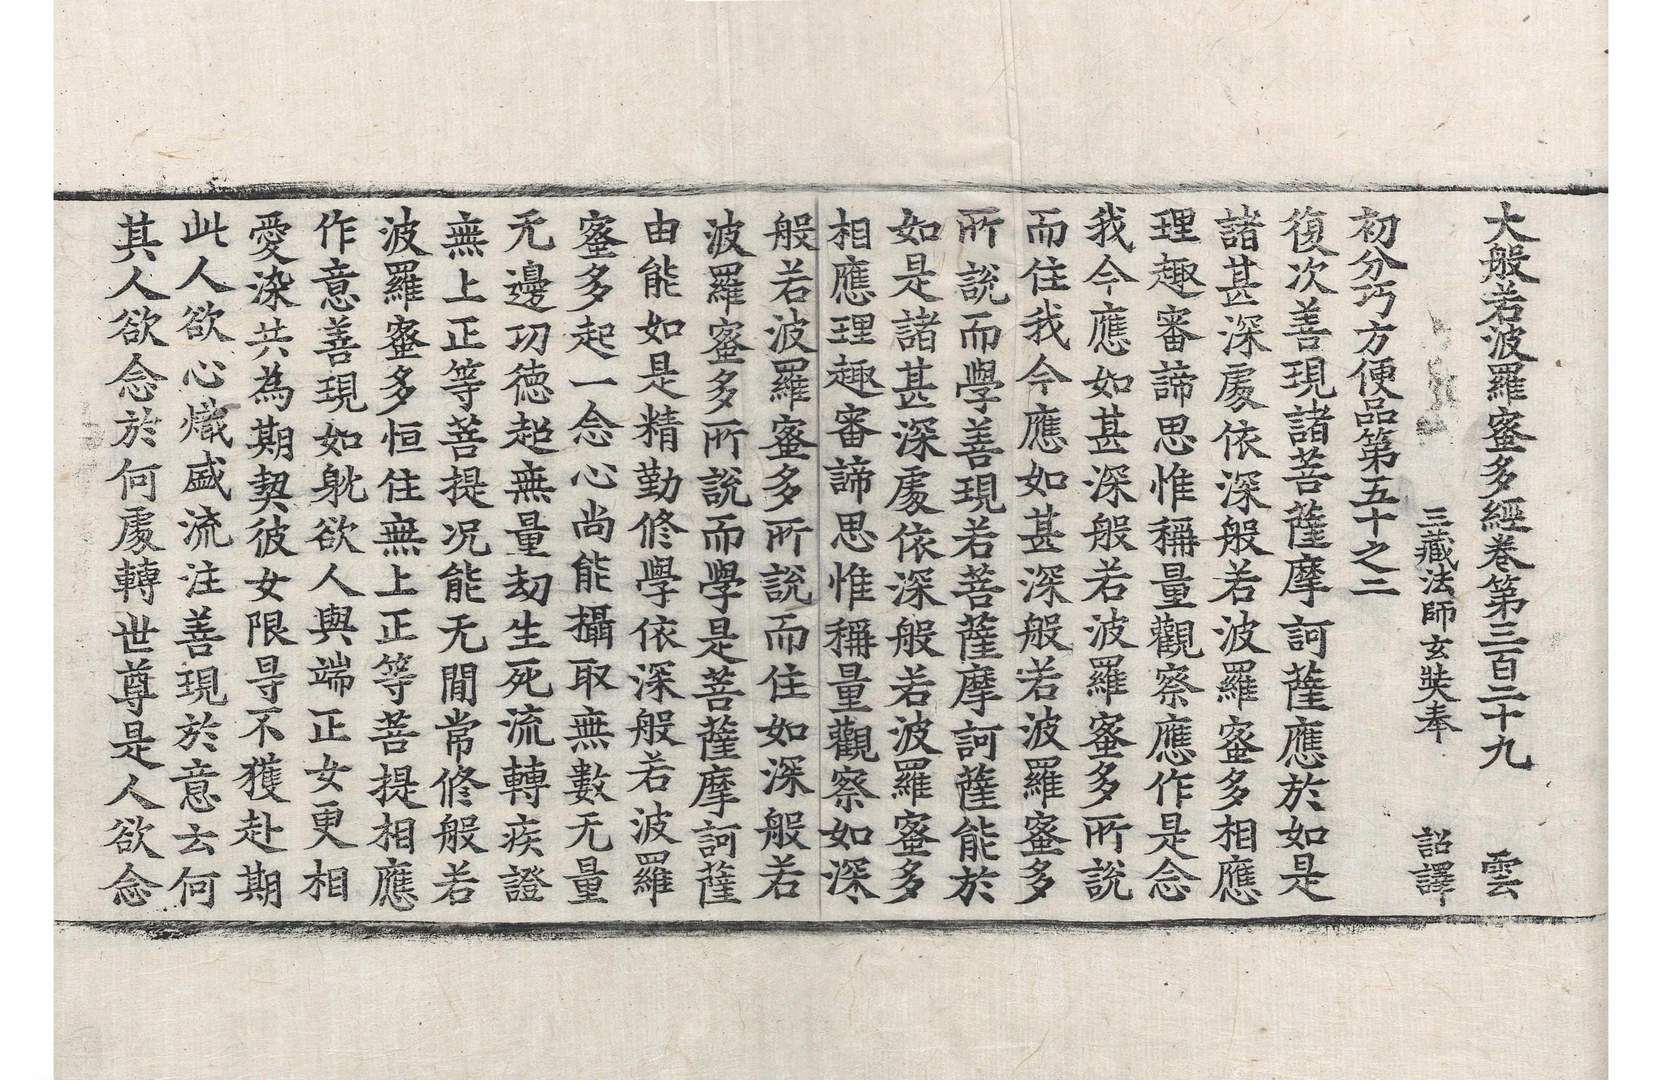 大般若波羅蜜多經卷第三百二十九　雲
三藏法師玄奘奉　詔譯
初分巧方便品第五十之二
復次善現諸菩薩摩訶薩應於如是
諸甚深處依深般若波羅蜜多相應
理趣審諦思惟稱量觀察應作是念
我今應如甚深般若波羅蜜多所說
而住我今應如甚深般若波羅蜜多
所說而學善現若菩薩摩訶薩能於
如是諸甚深處依深般若波羅蜜多
相應理趣審諦思惟稱量觀察如深
般若波羅蜜多所說而住如深般若
波羅蜜多所說而學是菩薩摩訶薩
由能如是精勤修學依深般若波羅
蜜多起一念心尚能攝取無數无量
无邊功德超無量劫生死流轉疾證
無上正等菩提况能无閒常修般若
波羅蜜多恒住無上正等菩提相應
作意善現如躭欲人與端正女更相
愛染共為期契彼女限㝵不獲赴期
此人欲心熾盛流注善現於意云何
其人欲念於何處轉世尊是人欲念